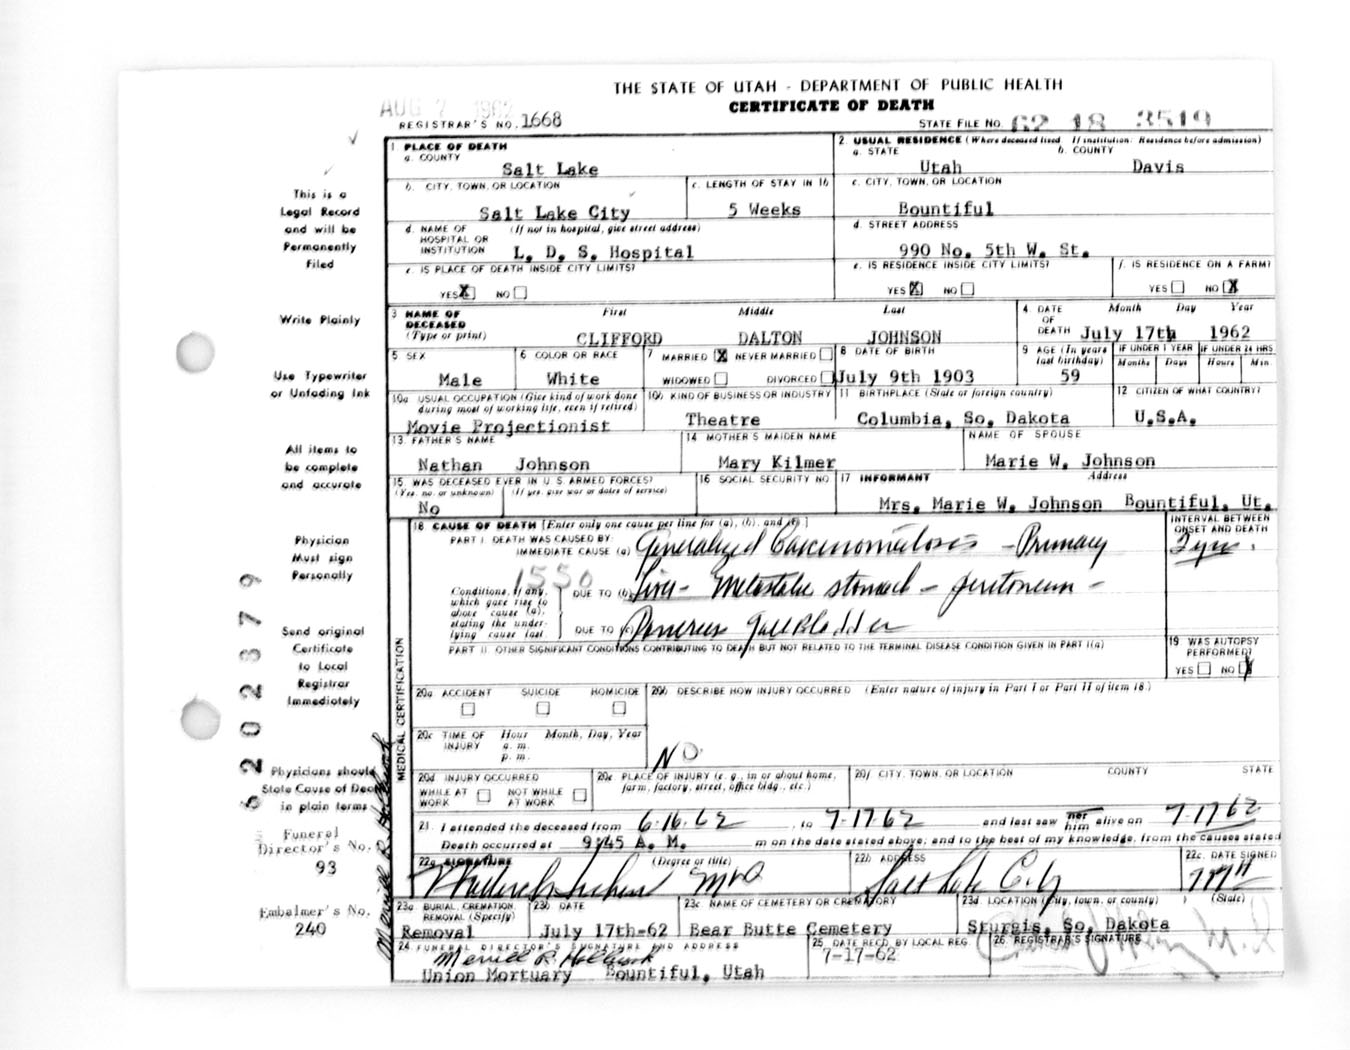 THE STATE OF UTAH - DEPARTMENT OF PUBLIC HEALTH
CERTIFICATE OF DEATH
AUG 7 1962
REGISTRAR'S NO. 1668
STATE FILE NO. 62 18 3519
This is a
Legal Record
and will be
Permanently
Filed
Write Plainly
Use Typewriter
or Unfading Ink
All items to
be complete
and accurate
Physician
Must sign
Personally
Send original
Certificate
to Local
Registrar
Immediately
Physicians should
State Cause of Death
in plain terms
Funeral
Director's No.
93
Embalmer's No.
240
1 PLACE OF DEATH
a. COUNTY
Salt Lake
2. USUAL RESIDENCE (Where deceased lived If institution: Residence before admission)
a. STATE b. COUNTY
Utah Davis
b. CITY, TOWN, OR LOCATION
Salt Lake City
c. LENGTH OF STAY IN 1b
5 Weeks
c. CITY, TOWN, OR LOCATION
Bountiful
d. NAME OF HOSPITAL OR INSTITUTION (If not in hospital, give street address)
L. D. S. Hospital
d. STREET ADDRESS
990 No. 5th W. St.
e. IS PLACE OF DEATH INSIDE CITY LIMITS?
YES X NO
e. IS RESIDENCE INSIDE CITY LIMITS?
YES X NO
f. IS RESIDENCE ON A FARM?
YES NO X
3 NAME OF DECEASED (Type or print)
First Middle Last
CLIFFORD DALTON JOHNSON
4 DATE OF DEATH Month Day Year
July 17th 1962
5 SEX
Male
6 COLOR OR RACE
White
7 MARRIED X NEVER MARRIED
WIDOWED DIVORCED
8 DATE OF BIRTH
July 9th 1903
9 AGE (In years last birthday)
59
IF UNDER 1 YEAR
Months Days
IF UNDER 24 HRS
Hours Min.
10a USUAL OCCUPATION (Give kind of work done during most of working life, even if retired)
Movie Projectionist
10b KIND OF BUSINESS OR INDUSTRY
Theatre
11 BIRTHPLACE (State or foreign country)
Columbia, So. Dakota
12 CITIZEN OF WHAT COUNTRY?
U.S.A.
13 FATHER'S NAME
Nathan Johnson
14 MOTHER'S MAIDEN NAME
Mary Kilmer
NAME OF SPOUSE
Marie W. Johnson
15 WAS DECEASED EVER IN U.S. ARMED FORCES?
(Yes, no, or unknown) (If yes, give war or dates of service)
No
16 SOCIAL SECURITY NO
17 INFORMANT Address
Mrs. Marie W. Johnson Bountiful, Ut.
MEDICAL CERTIFICATION
18 CAUSE OF DEATH [Enter only one cause per line for (a), (b), and (c)]
PART I. DEATH WAS CAUSED BY:
IMMEDIATE CAUSE (a) Generalized Carcinomatosis - Primary
INTERVAL BETWEEN ONSET AND DEATH
2 yrs.
1550
Conditions, if any, which gave rise to above cause (a), stating the underlying cause last.
DUE TO (b) Liver - Metastatic stomach - peritoneum -
DUE TO (c) Pancreas Gall Bladder
PART II OTHER SIGNIFICANT CONDITIONS CONTRIBUTING TO DEATH BUT NOT RELATED TO THE TERMINAL DISEASE CONDITION GIVEN IN PART I(a)
19 WAS AUTOPSY PERFORMED?
YES NO X
20a ACCIDENT SUICIDE HOMICIDE
20b DESCRIBE HOW INJURY OCCURRED (Enter nature of injury in Part I or Part II of item 18.)
20c TIME OF INJURY Hour Month, Day, Year
a. m.
p. m.
NO
20d INJURY OCCURRED
WHILE AT WORK NOT WHILE AT WORK
20e PLACE OF INJURY (e. g., in or about home, farm, factory, street, office bldg., etc.)
20f CITY, TOWN, OR LOCATION COUNTY STATE
21. I attended the deceased from 6-16-62, to 7-17-62 and last saw her him alive on 7-17-62
Death occurred at 9:45 A. M. m on the date stated above; and to the best of my knowledge, from the causes stated
22a SIGNATURE (Degree or title)
MD
22b ADDRESS
Salt Lake City
22c. DATE SIGNED
23a BURIAL, CREMATION, REMOVAL (Specify)
Removal
23b DATE
July 17th-62
23c NAME OF CEMETERY OR CREMATORY
Bear Butte Cemetery
23d. LOCATION (City, town, or county) (State)
Sturgis, So. Dakota
24 FUNERAL DIRECTOR'S SIGNATURE AND ADDRESS
Union Mortuary Bountiful, Utah
25 DATE RECD. BY LOCAL REG.
7-17-62
26. REGISTRAR'S SIGNATURE